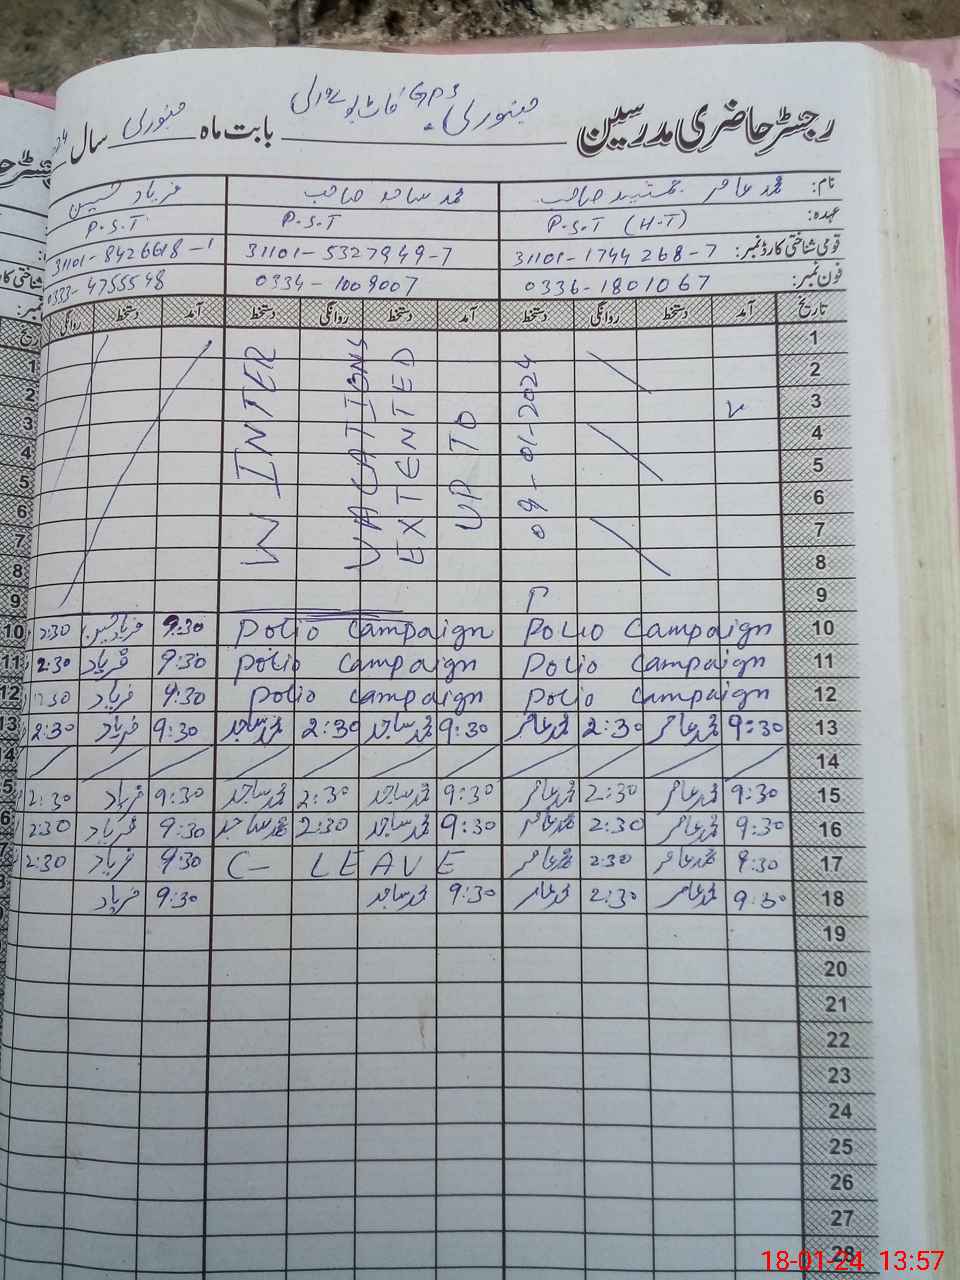 رجسٹر حاضری مدرسین جنوری GPS بابت ماہ جنوری سال
نام: محمد عامر جمشید صاحب محمد ساجد صاحب فریاد حسین
عہدہ: P.S.T (H.T) P.S.T P.S.T
قومی شناختی کارڈ نمبر: 31101-1744268-7 31101-5327949-7 31101-8426618-1
فون نمبر: 0336-1801067 0334-1009007 0333-4755548
تاریخ آمد دستخط روانگی دستخط آمد دستخط روانگی دستخط آمد دستخط روانگی
WINTER
VACATIONS
EXTENTED
UP TO
09-01-2024
1
2
3
4
5
6
7
8
9
10 Polio Campaign Polio Campaign 9:30 فریاد حسین 2:30
11 Polio Campaign Polio Campaign 9:30 فریاد 2:30
12 Polio Campaign Polio Campaign 9:30 فریاد 2:30
13 9:30 محمد عامر 2:30 محمد عامر 9:30 محمد ساجد 2:30 محمد ساجد 9:30 فریاد 2:30
14
15 9:30 محمد عامر 2:30 محمد عامر 9:30 محمد ساجد 2:30 محمد ساجد 9:30 فریاد 2:30
16 9:30 محمد عامر 2:30 محمد عامر 9:30 محمد ساجد 2:30 محمد ساجد 9:30 فریاد 2:30
17 9:30 محمد عامر 2:30 محمد عامر C- LEAVE 9:30 فریاد 2:30
18 9:30 محمد عامر 2:30 محمد عامر 9:30 محمد ساجد 9:30 فریاد
19
20
21
22
23
24
25
26
27
28
18-01-24 13:57